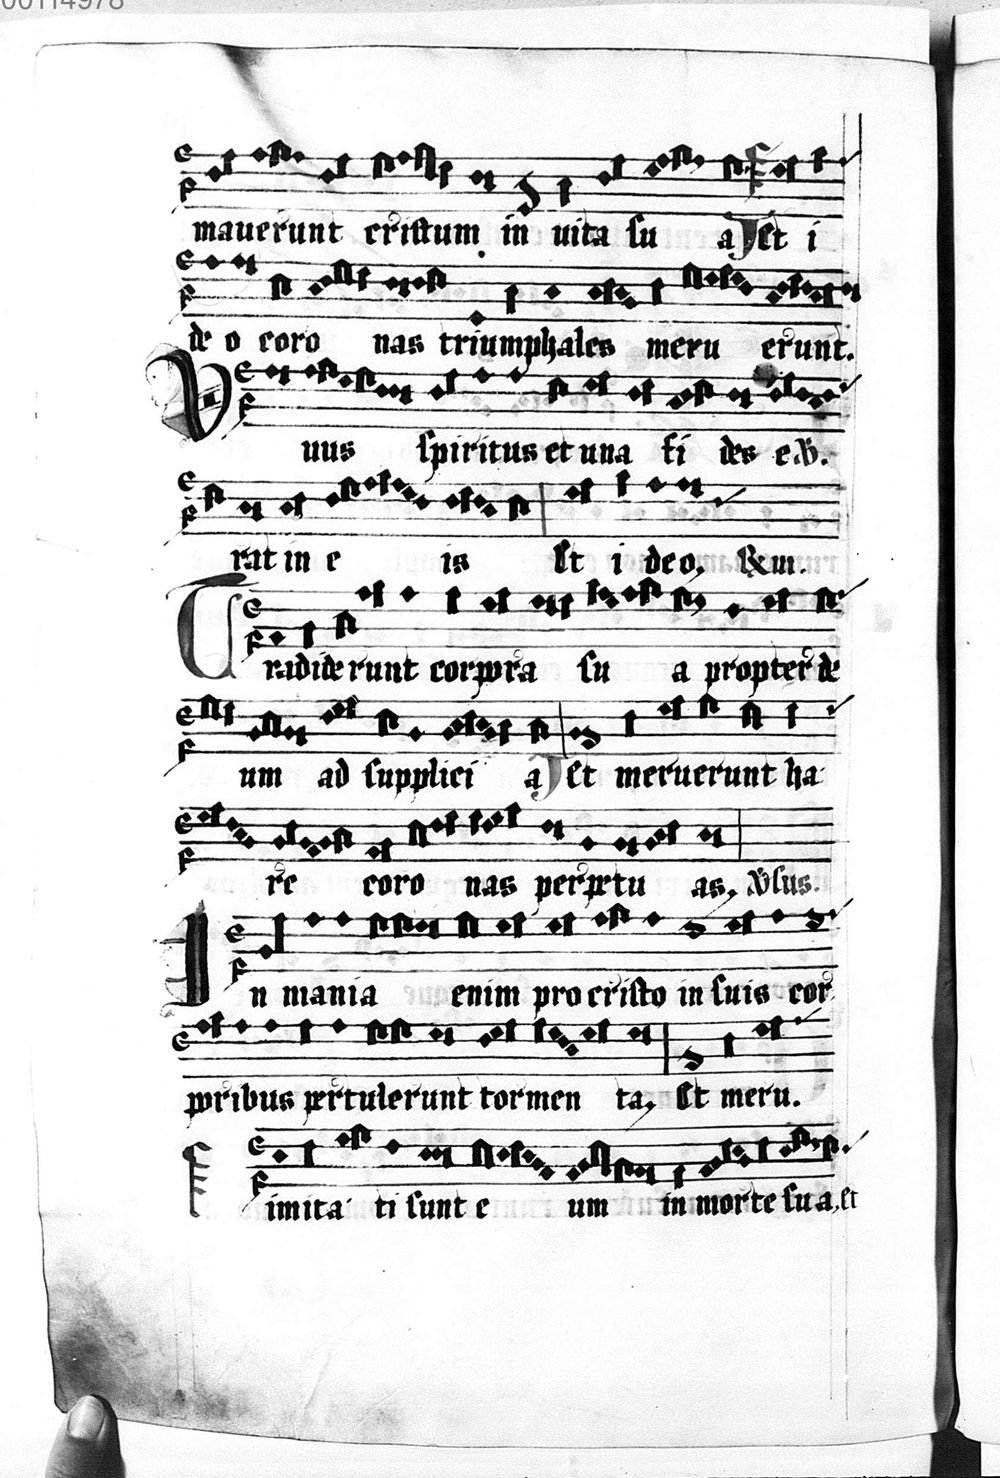 00114978
mauerunt cristum in uita su a Et i
de o coro nas triumphales meru erunt.
Unus spiritus et una fi des e
rat in e is Et i de o, R m.
Tradiderunt corpora su a propter de
um ad supplici a Et meruerunt ha
re coro nas perpetu as, Vsus.
In mania enim pro cristo in suis cor
poribus pertulerunt tormen ta, Et meru.
imita ti sunt e um in morte su a, et